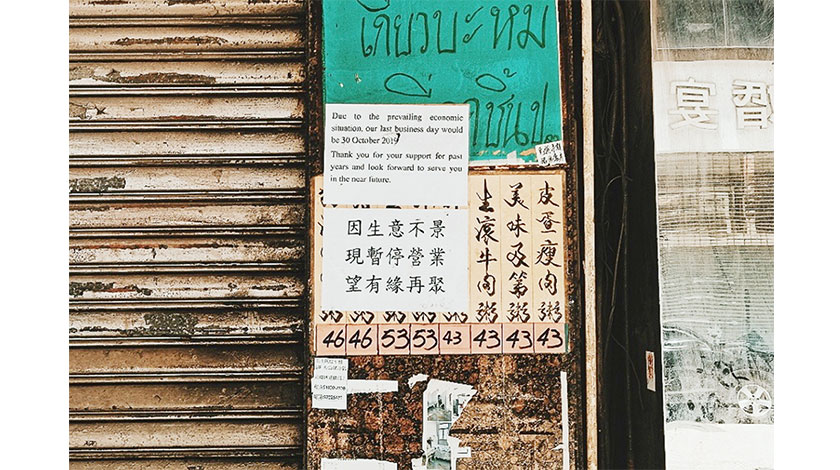 เกียวบะหม
Due to the prevailing economic
situation, our last business day would
be 30 October 2019
Thank you for your support for past
years and look forward to serve you
in the near future.
因生意不景
現暫停營業
望有緣再聚
皮蛋瘦肉粥
美味及第粥
生滾牛肉粥
46 46 53 53 43 43 43 43
宴